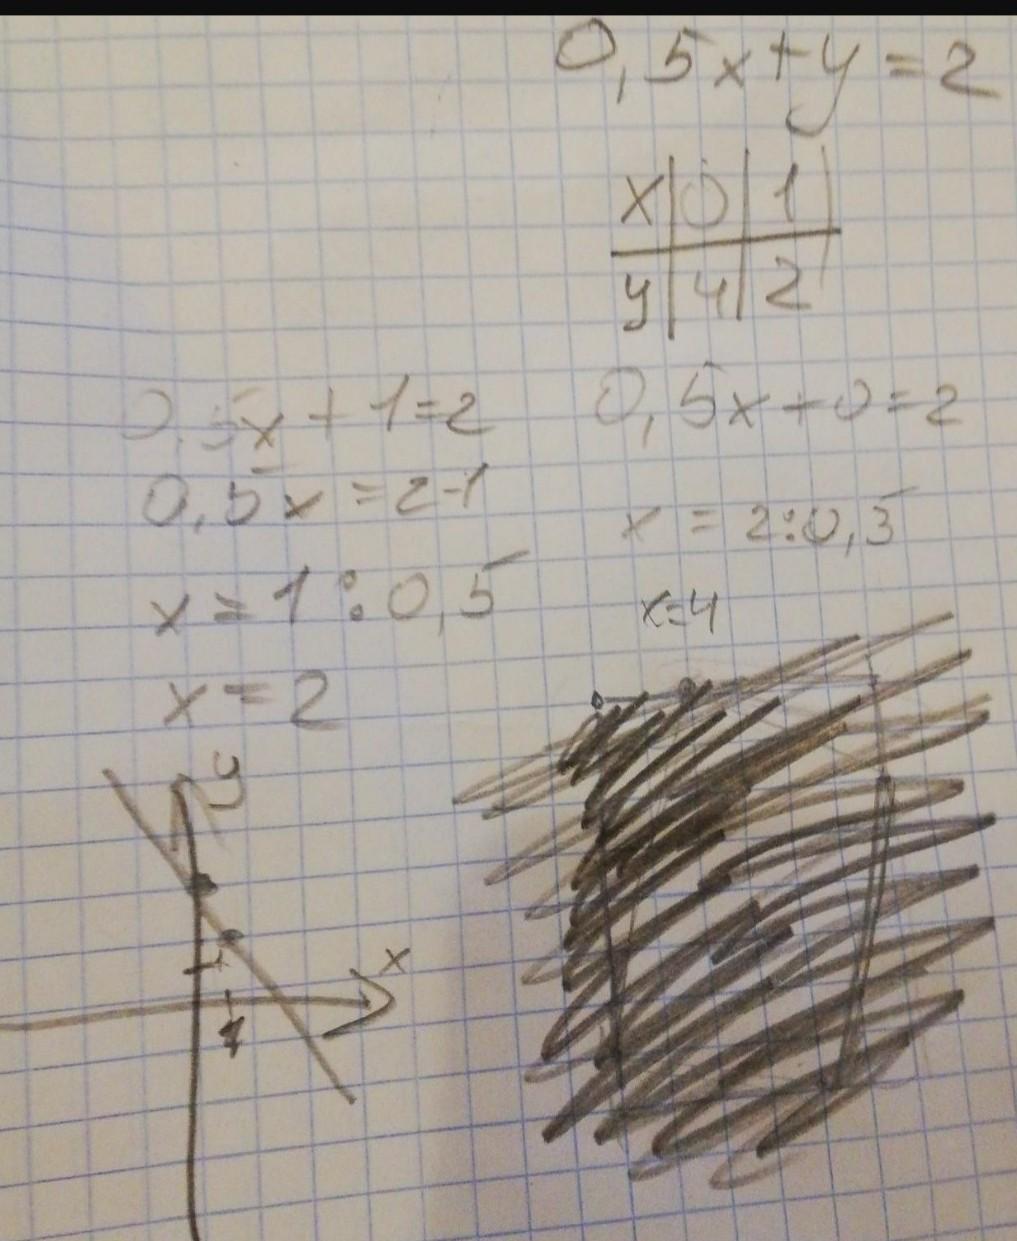 0,5x+y=2
x 0 1
y 4 2
0,5x+1=2
0,5x=2-1
x=1:0,5
x=2
0,5x+0=2
x=2:0,5
x=4
y
x
1
1